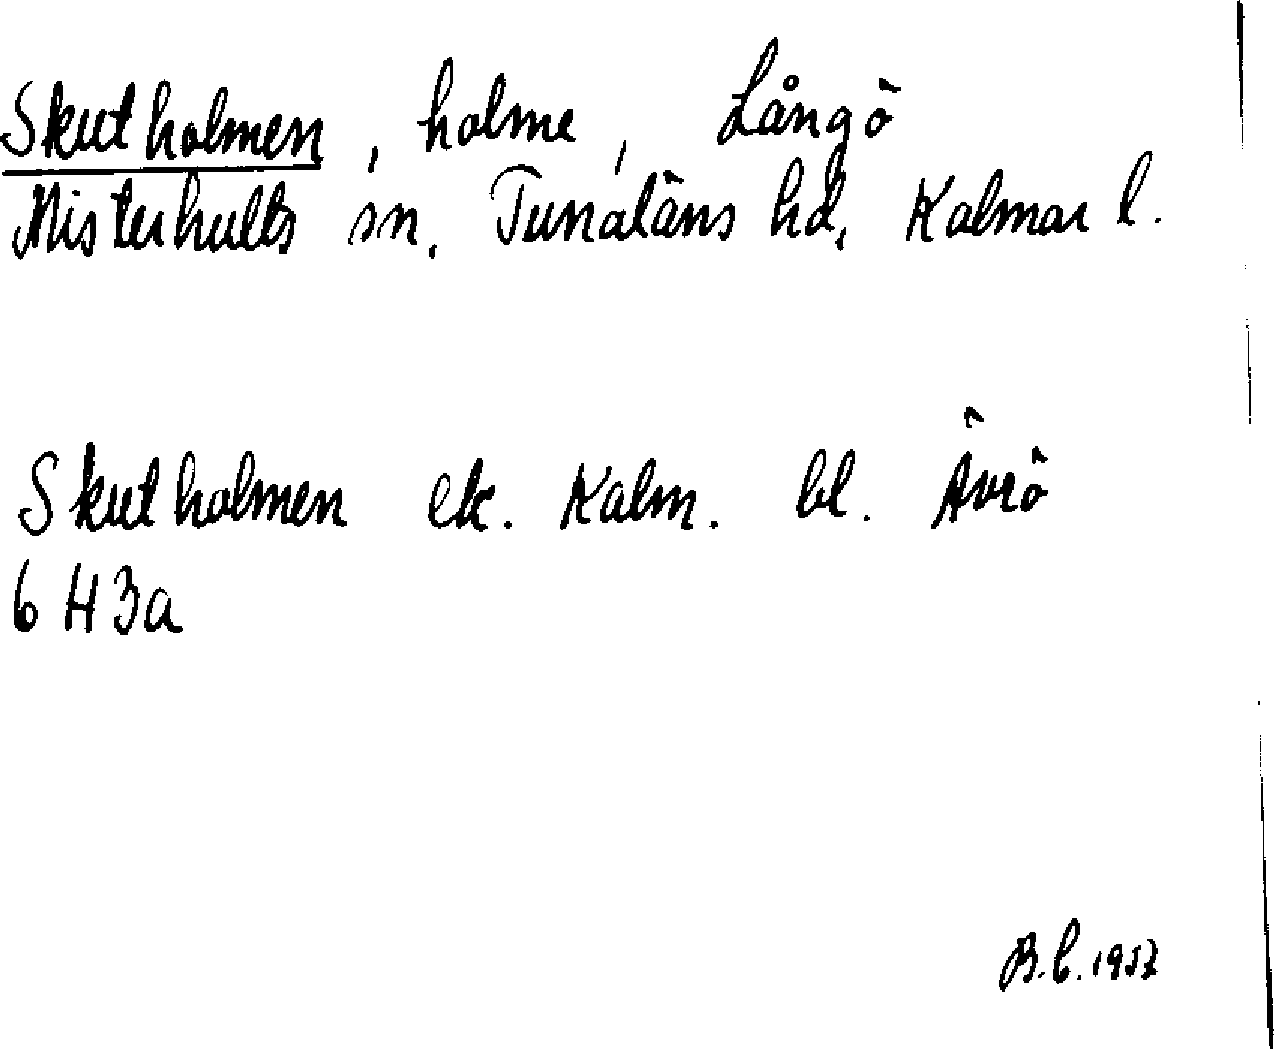 Skutholmen, holme, Långö
Misterhults sn. Tunaläns hd, Kalmar l.
Skutholmen ek. Kalm. bl. Ävrö
6 H 3a
B.C. 1957